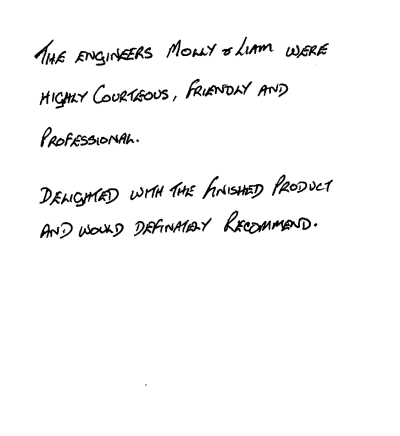 THE ENGINEERS MOLLY & LIAM WERE
HIGHLY COURTEOUS, FRIENDLY AND
PROFESSIONAL.
DELIGHTED WITH THE FINISHED PRODUCT
AND WOULD DEFINATELY RECOMMEND.